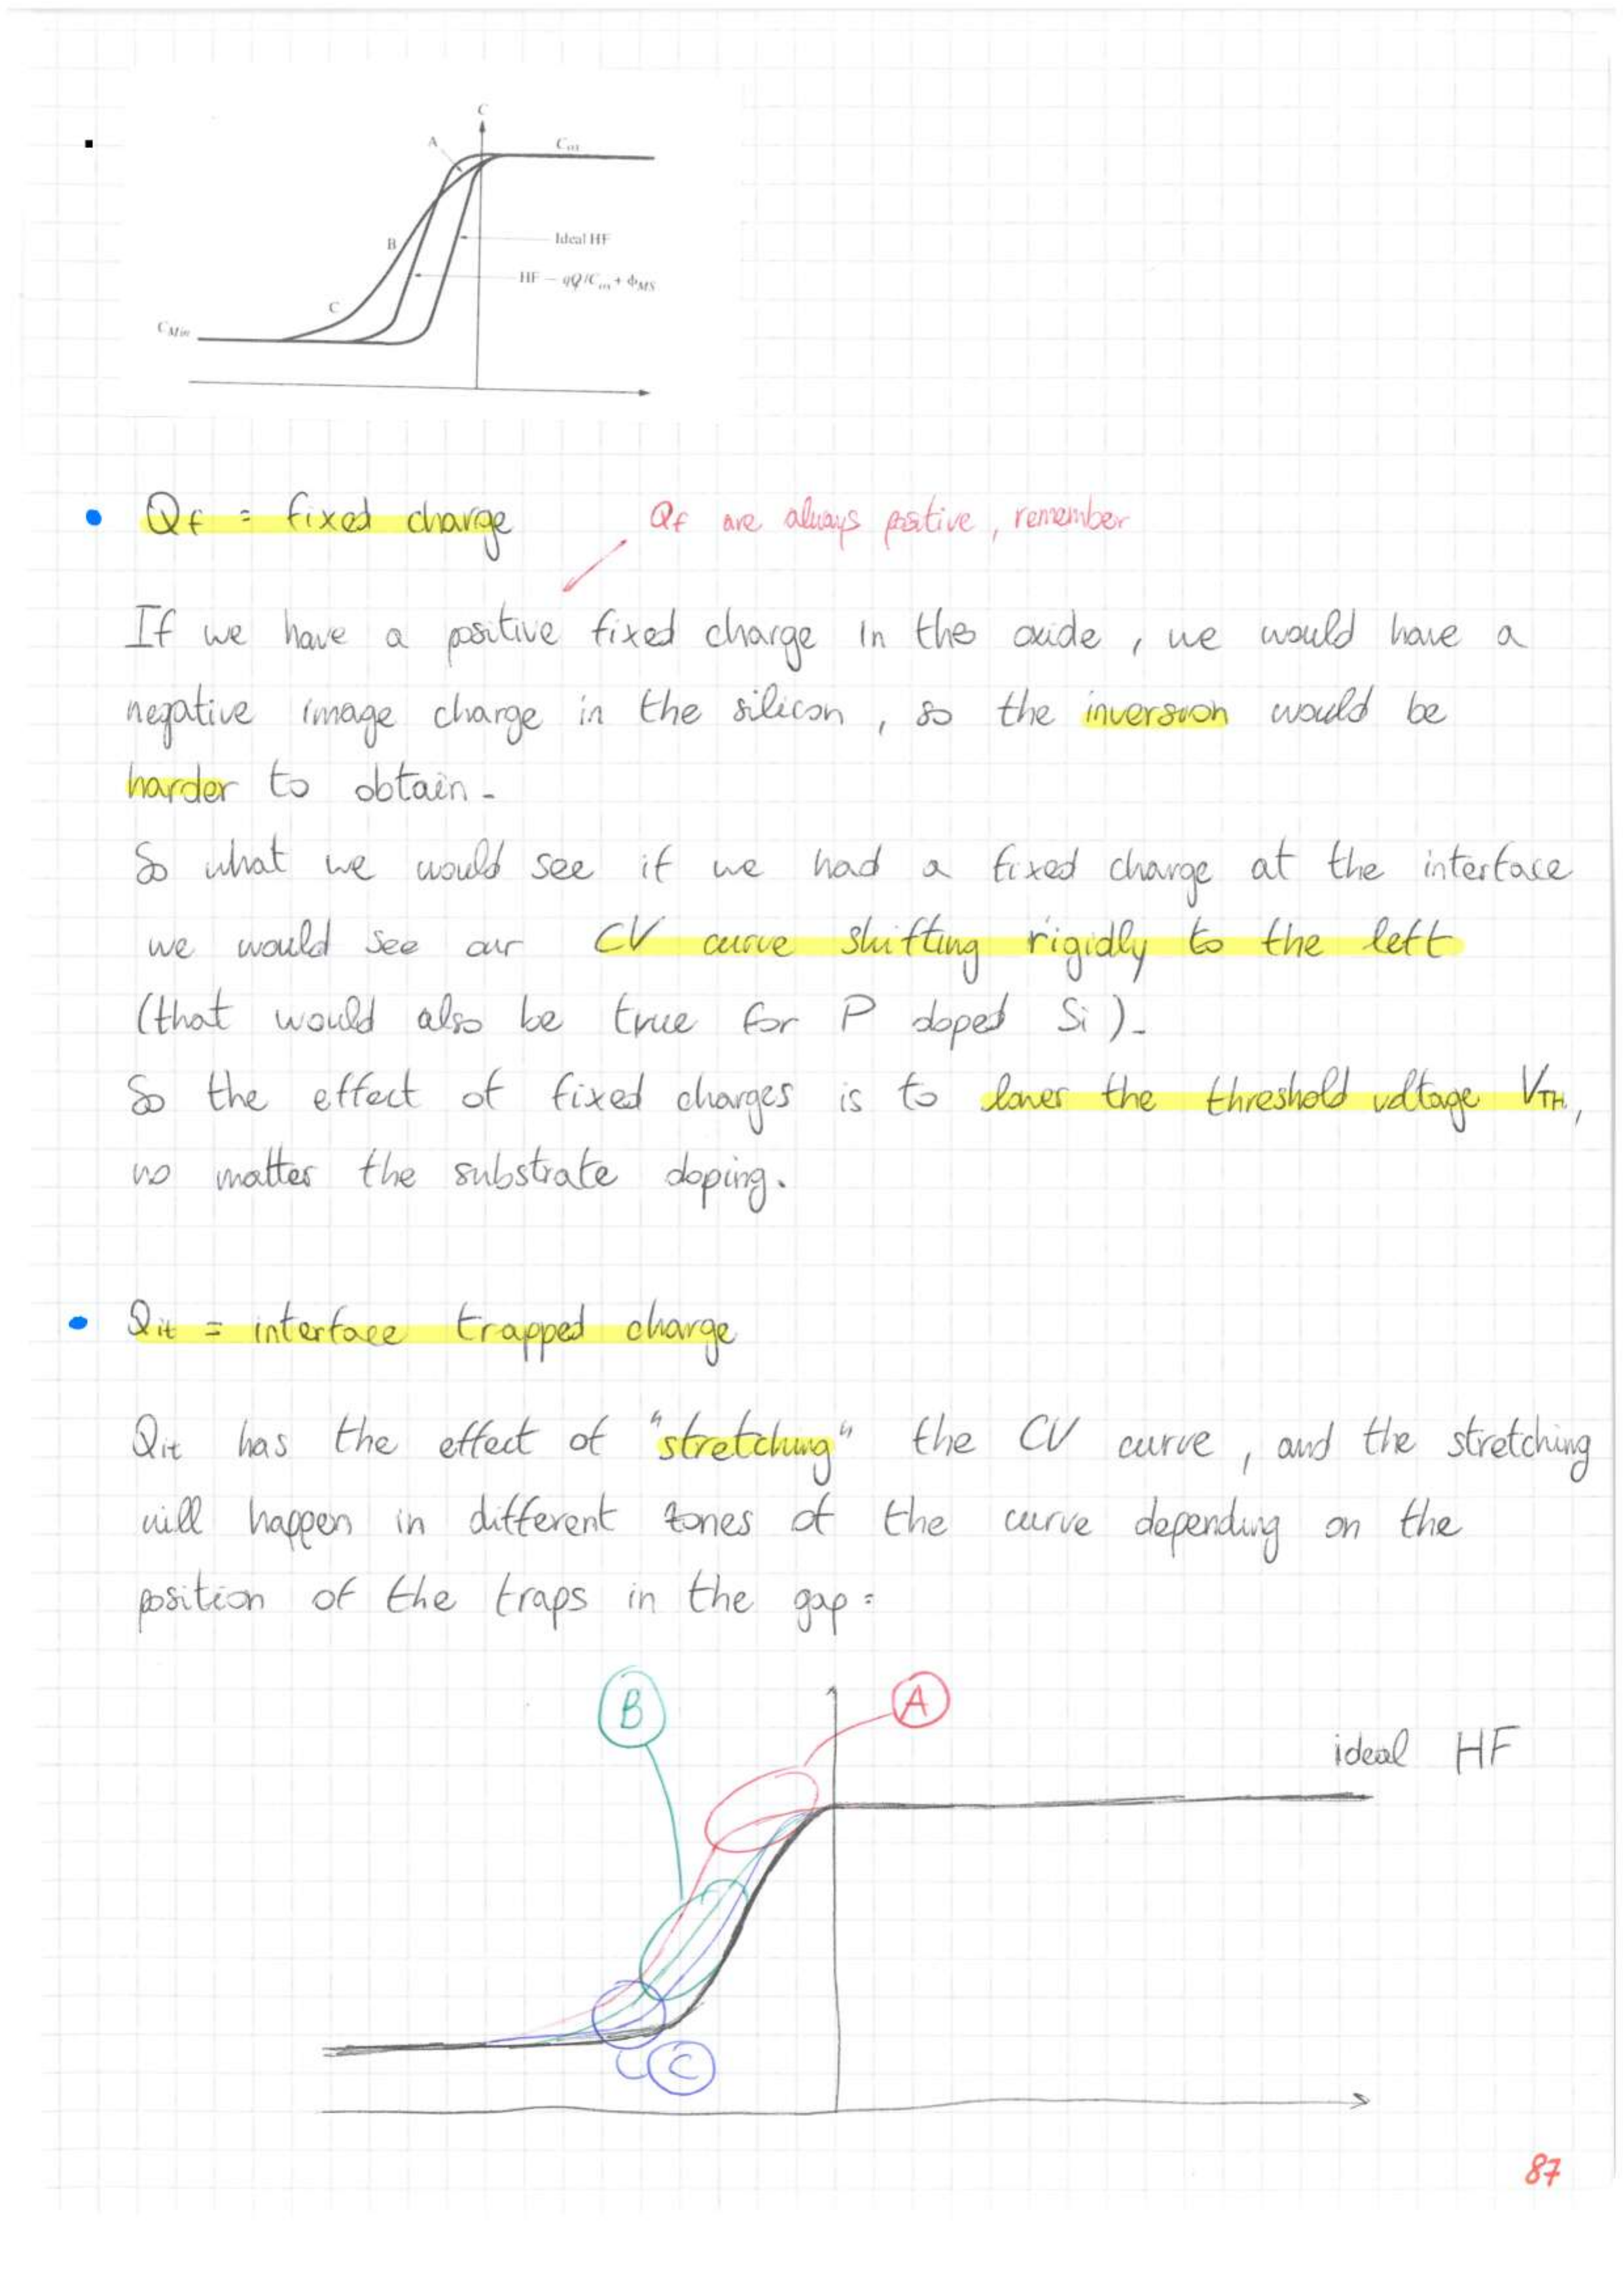 C
A
Cox
B
Ideal HF
HF – qQ/Cox + ΦMS
C
CMin
• Qf = fixed charge
Qf are always positive, remember
If we have a positive fixed charge in the oxide, we would have a
negative image charge in the silicon, so the inversion would be
harder to obtain.
So what we would see if we had a fixed charge at the interface
we would see our CV curve shifting rigidly to the left
(that would also be true for P doped Si).
So the effect of fixed charges is to lower the threshold voltage VTH,
no matter the substrate doping.
• Qit = interface trapped charge
Qit has the effect of "stretching" the CV curve, and the stretching
will happen in different zones of the curve depending on the
position of the traps in the gap:
B
A
ideal HF
C
87